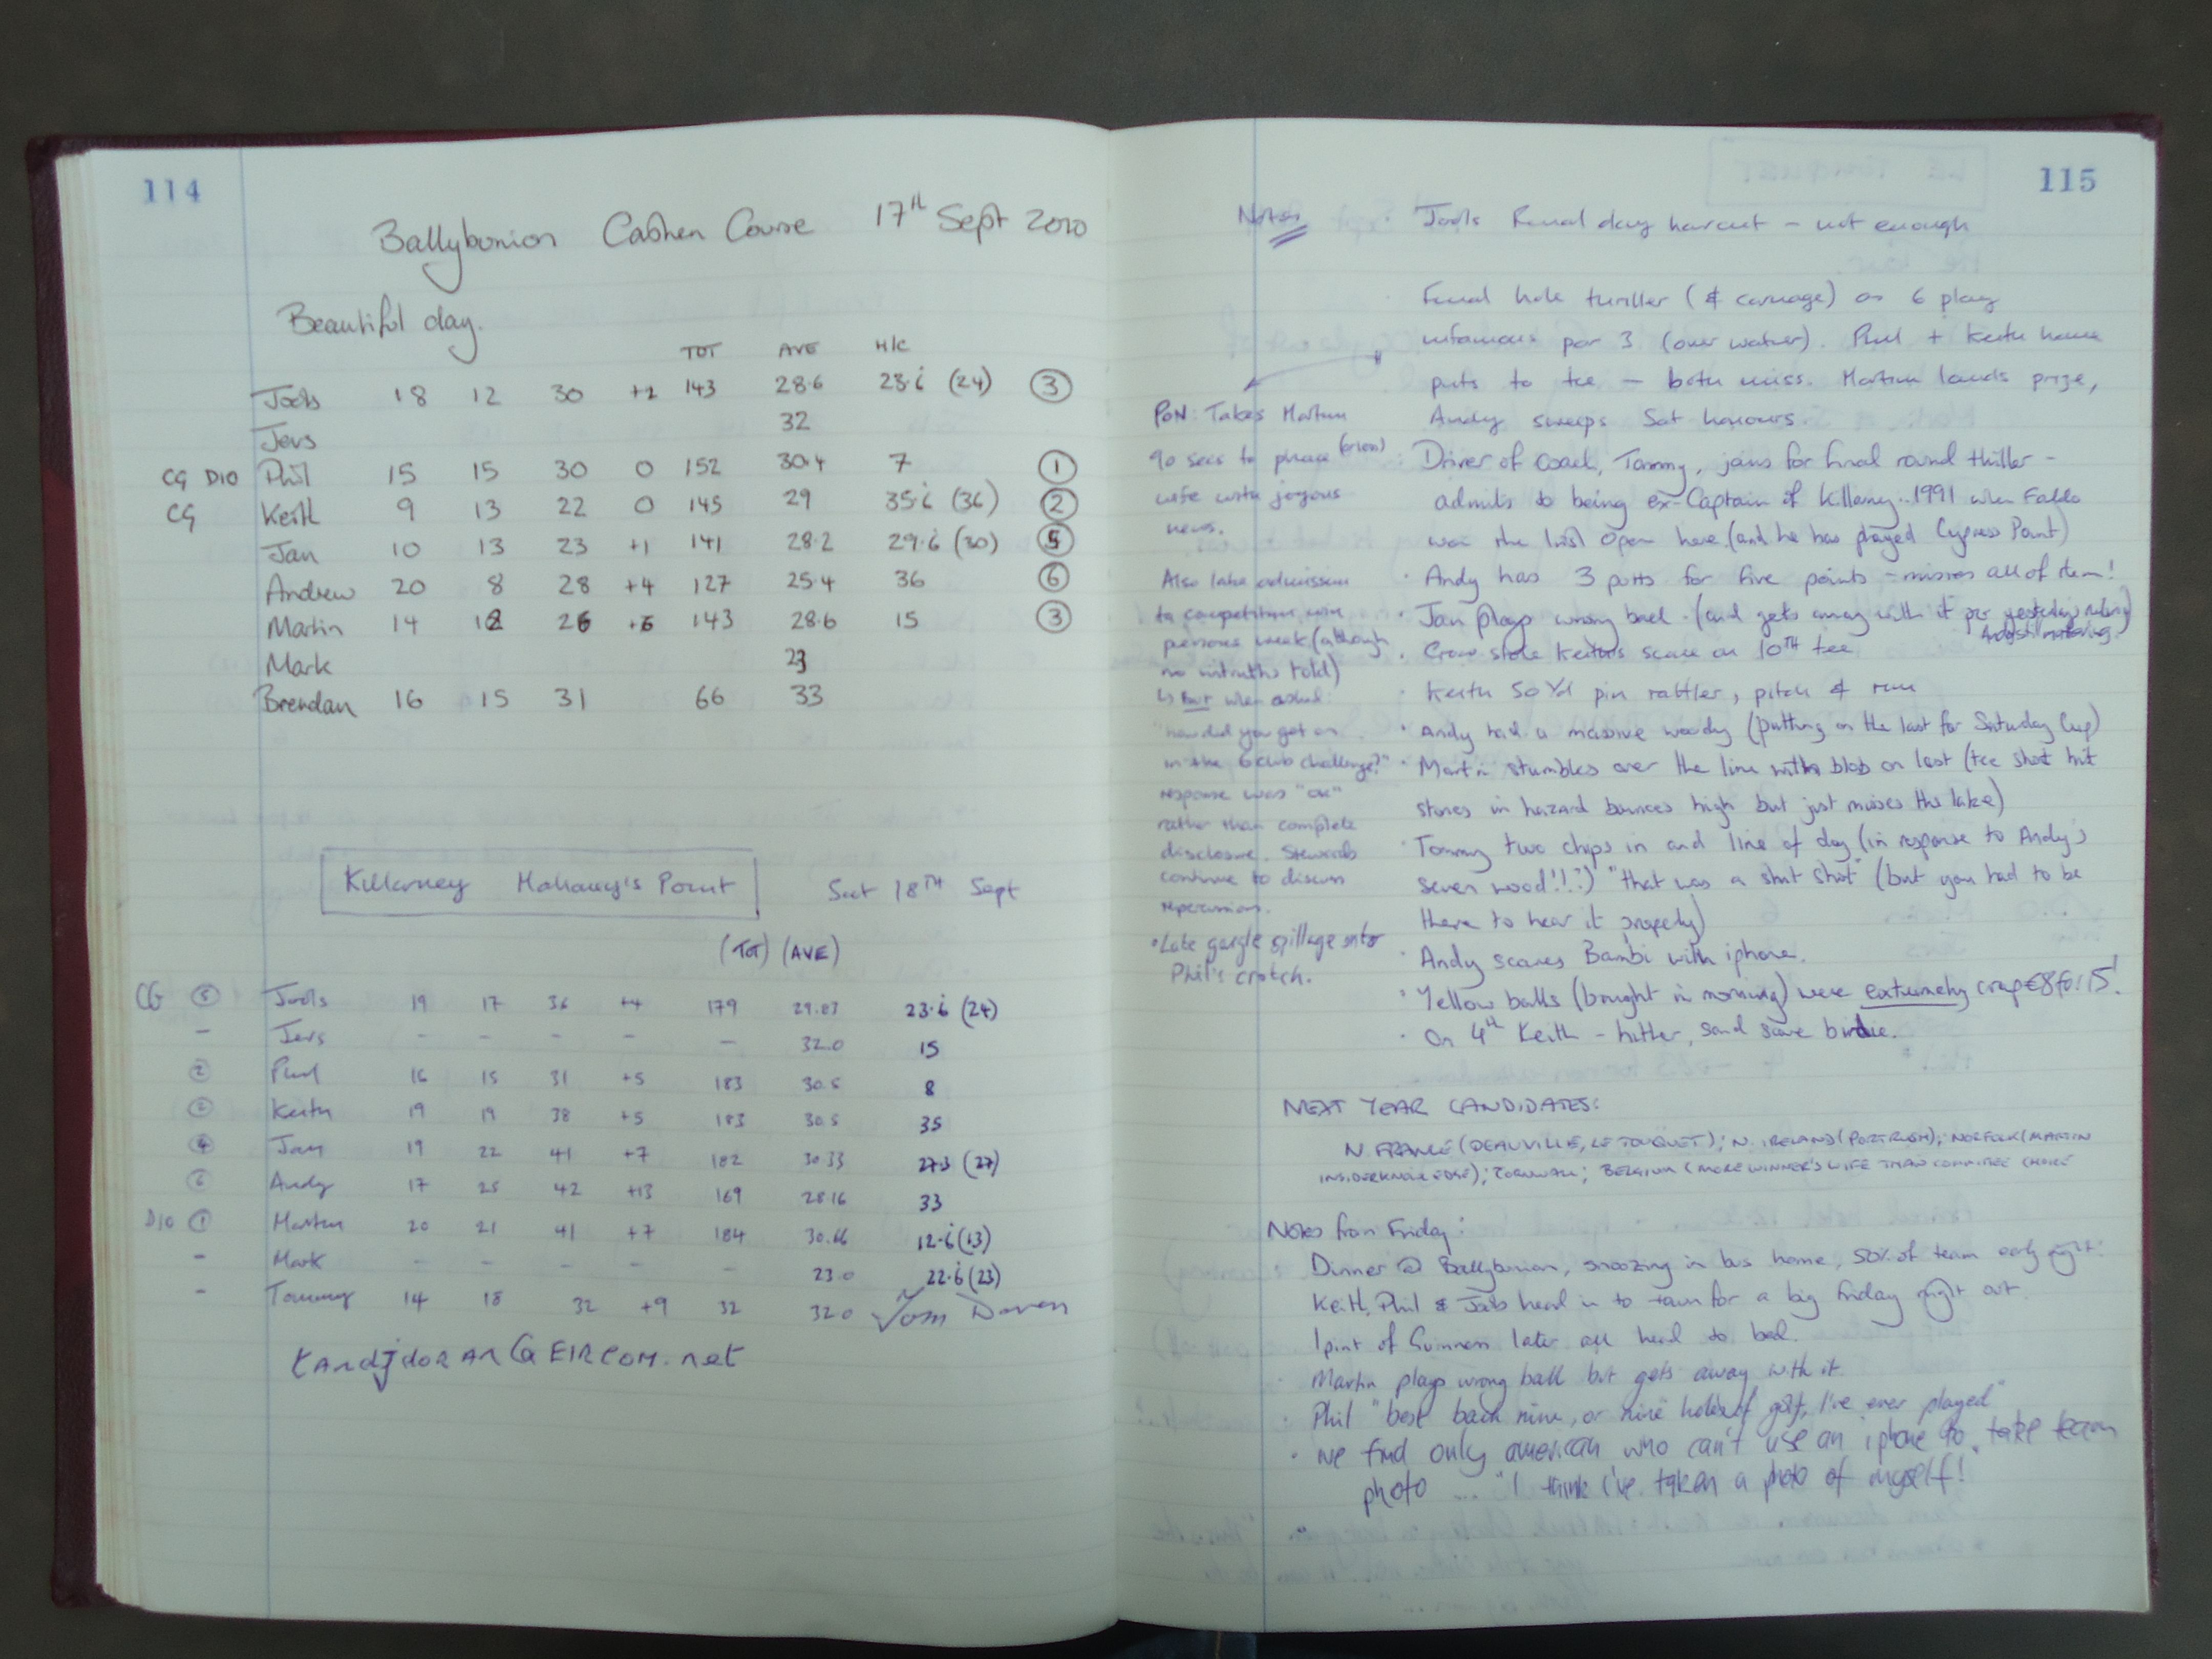 114
Ballybunion Cashen Course 17th Sept 2010
Beautiful day.
TOT AVE H/C
Jools 18 12 30 143 28.6 23.6 (24) 3
Jers 32
CG D10 Phil 15 15 30 0 152 30.4 7 1
CG Keith 9 13 22 0 145 29 35.6 (36) 2
Jan 10 13 23 +1 141 28.2 29.6 (30) 5
Andrew 20 8 28 +4 127 25.4 36 6
Martin 14 12 26 +6 143 28.6 15 3
Mark 23
Brendan 16 15 31 66 33
Killarney Mahoney's Point Sat 18TH Sept
(TOT) (AVE)
CG 5 Jools 19 17 36 +4 179 29.83 23.6 (24)
- Jers - - - - - 32.0 15
2 Phil 16 15 31 +5 183 30.5 8
2 Keith 19 19 38 +5 183 30.5 35
4 Jan 19 22 41 +7 182 30.33 27.3 (27)
6 Andy 17 25 42 +13 169 28.16 33
D10 1 Martin 20 21 41 +7 184 30.66 12.6 (13)
- Mark - - - - - 23.0 22.6 (23)
- Tommy 14 18 32 +9 32 32.0 Tom Doran
tandjdoran@EIRCOM.net
115
Notes
Jools Final day haircut - not enough
Final hole thriller (& carnage) as 6 play
infamous par 3 (over water). Phil + Keith have
puts to tie - both miss. Martin lands prize,
Andy sweeps Sat honours.
Driver of coach, Tommy, joins for final round thriller -
admits to being ex-Captain of Killarney.. 1991 when Faldo
won the Irish Open here (and he has played Cypress Point)
· Andy has 3 putts for five points - misses all of them!
· Jan plays wrong ball. (and gets away with it per yesterday's ruling)
Andy still muttering
· Crow stole Keith's scone on 10TH tee
· Keith 50 Yd pin rattler, pitch & run
· Andy had a massive woody (putting on the last for Saturday Cup)
· Martin stumbles over the line with blob on last (tee shot hit
stones in hazard bounces high but just misses the lake)
· Tommy two chips in and line of day (in response to Andy's
seven wood!!?) "that was a shit shot" (but you had to be
there to hear it properly)
· Andy scares Bambi with iphone.
· Yellow balls (bought in morning) were extremely crap €8 for 15!
· On 4th Keith - hitter, sand save birdie.
PON: Takes Martin
90 secs to phone
wife with joyous
news.
Also late admission
to competition win
previous week (although
no untruths told)
↳ But when asked
"how did you get on
in the 6 club challenge?"
response was "ok"
rather than complete
disclosure. Stewards
continue to discuss
repercussions.
· Late gargle spillage onto
Phil's crotch.
NEXT YEAR CANDIDATES:
N. FRANCE (DEAUVILLE, LE TOUQUET); N. IRELAND (PORTRUSH); NORFOLK (MARTIN
INSIDER KNOWLEDGE); CORNWALL; BELGIUM (MORE WINNER'S WIFE THAN COMMITTEE CHOICE
Notes from Friday:
Dinner @ Ballybunion, snoozing in bus home, 50% of team early night!
Keith, Phil & Jools head in to town for a big Friday night out.
1 pint of Guinness later all head to bed.
· Martin plays wrong ball but gets away with it
· Phil "best back nine, or nine holes of golf, I've ever played"
· we find only american who can't use an iphone to take team
photo .... "I think i've taken a photo of myself!